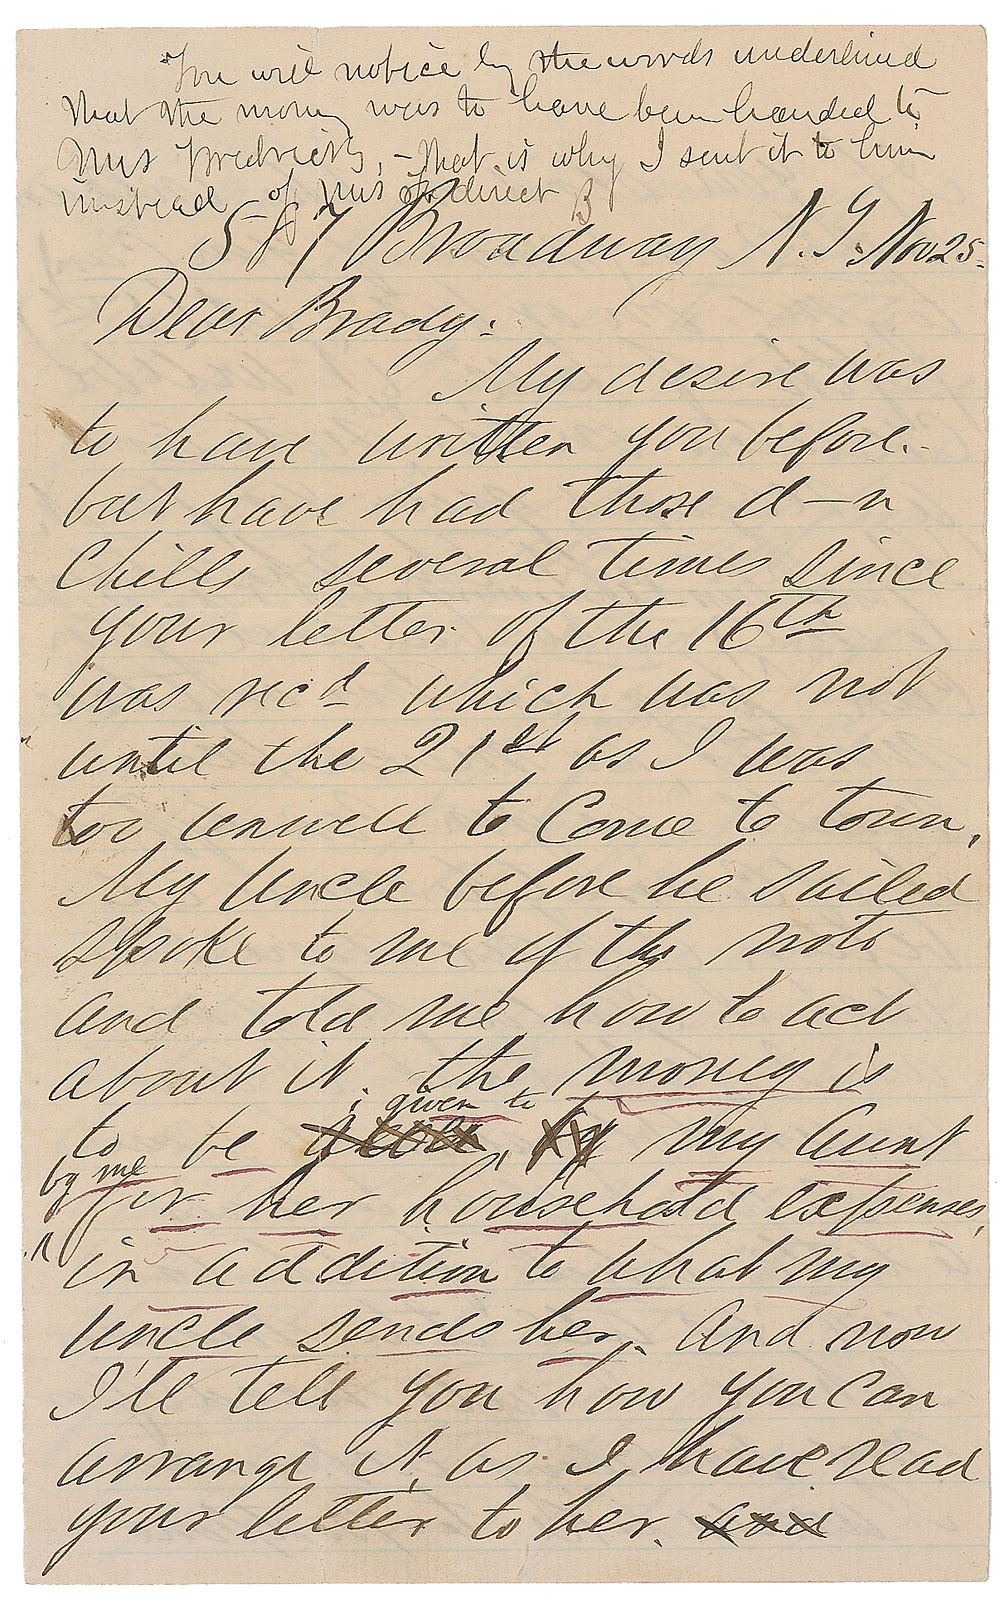 You will notice by the words underlined
that the money was to have been handed to
Mrs Fredricks, - that is why I sent it to him
instead of Mrs F direct B
587 Broadway N.Y. Nov 25.
Dear Brady:
My desire was
to have written you before.-
but have had those d-n
Chills several times since
your letter of the 16th
was recd which was not
until the 21st as I was
too unwell to Come to town.
My Uncle before he sailed
spoke to me of the note
and told me how to act
about it. the money is
given to
to be my Aunt
by me
for her household expenses,
in addition to what my
Uncle sends her. And now
I'll tell you how you can
arrange it, as I have read
your letter to her. and